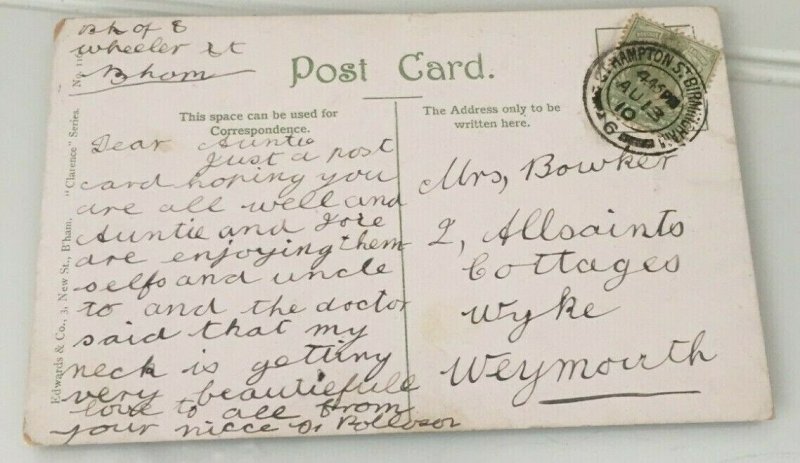 Bk of 8
Wheeler St
Bham
Post Card.
This space can be used for
Correspondence.
The Address only to be
written here.
Dear Auntie
Just a post
card hoping you
are all well and
Auntie and
are enjoying them
selfs and uncle
to and the doctor
said that my
neck is getting
very beautiefull
love to all from
your niece
Mrs, Bowker
2, Allsaints
Cottages
Wyke
Weymouth
HAMPTON ST BIRMINGHAM
AU 13
10
Edwards & Co., 3, New St., B'ham. "Clarence" Series.